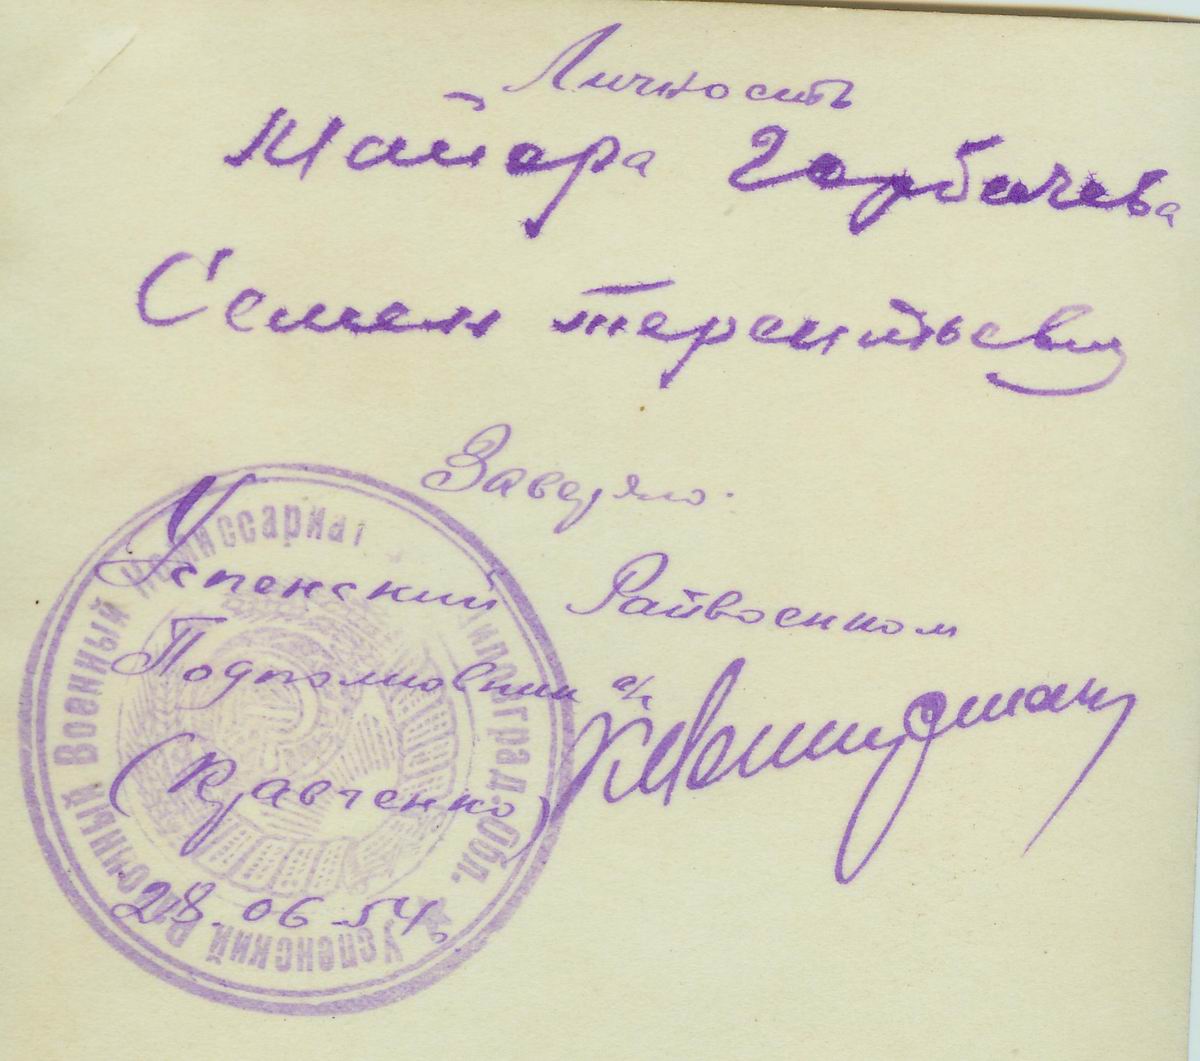 Личность
Майора Горбачева
Семен Терентьеви
Заверяю.
Успенский Райвоенком
Подполковник а/с
(Кравченко)
28.06.54
Успенский Районный Военный Комиссариат Обл.